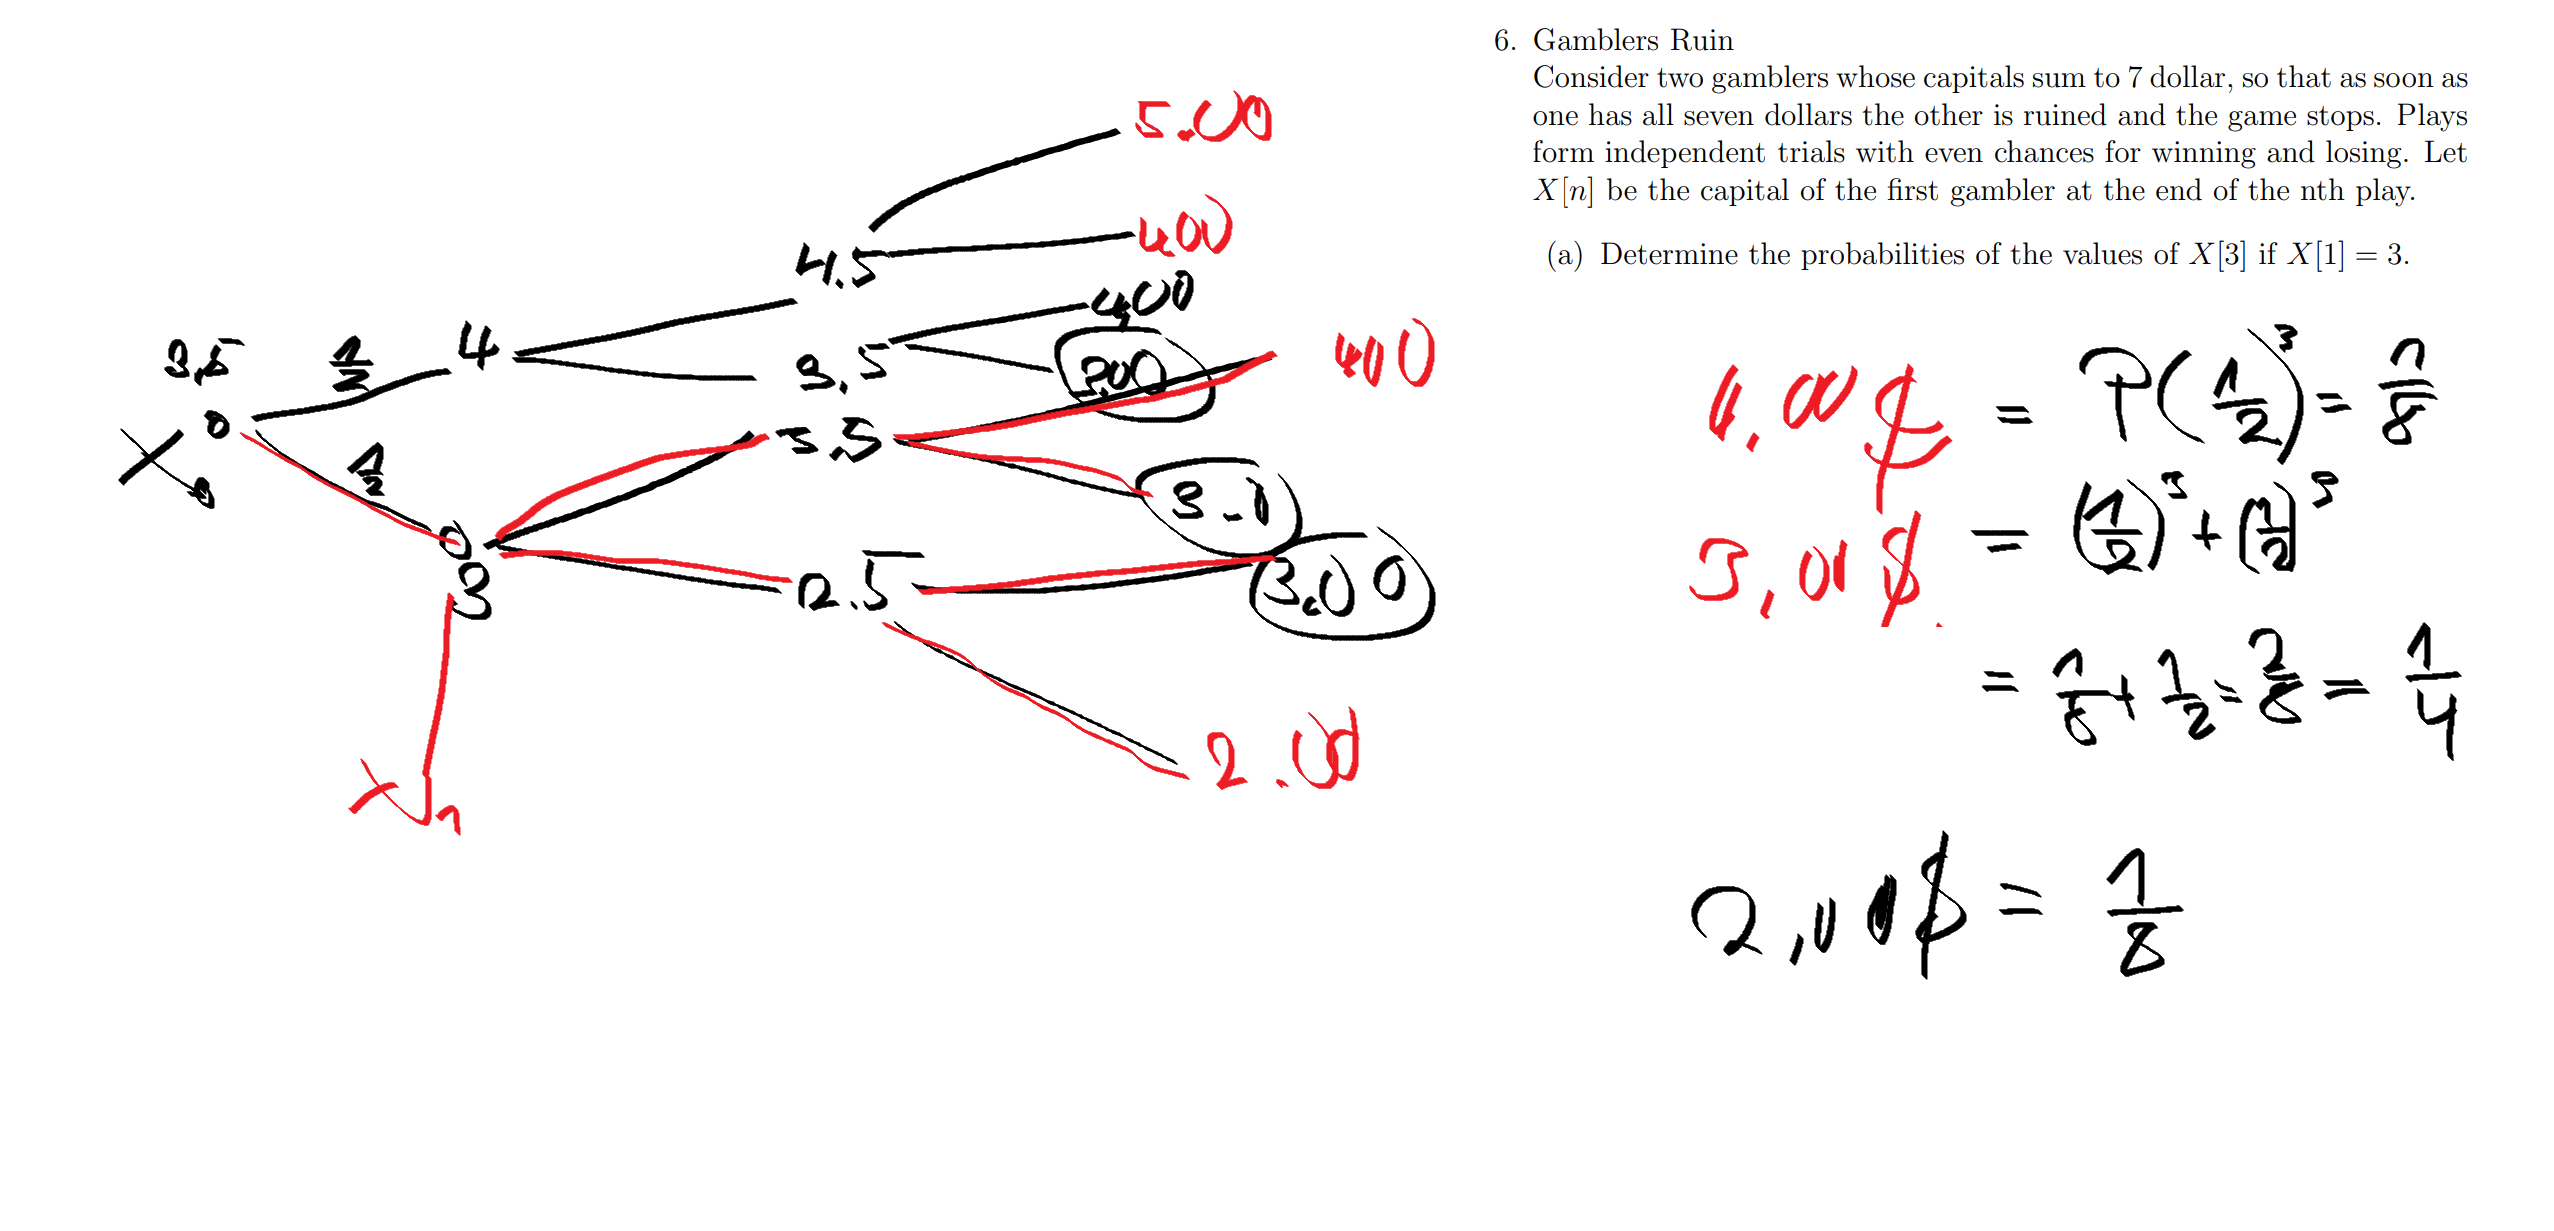 6. Gamblers Ruin
Consider two gamblers whose capitals sum to 7 dollar, so that as soon as
one has all seven dollars the other is ruined and the game stops. Plays
form independent trials with even chances for winning and losing. Let
X[n] be the capital of the first gambler at the end of the nth play.
(a) Determine the probabilities of the values of X[3] if X[1] = 3.
5.00
400
4.5
400
3,5 1/2 4
3,5 400
X0
1/2
3,5
3
2.5 3,00
2.00
X1
4,00$ = P(1/2)^3 = 1/8
3,00$ = (1/2)^3 + (1/2)^3
= 1/8 + 1/2 = 2/8 = 1/4
2,00$ = 1/8